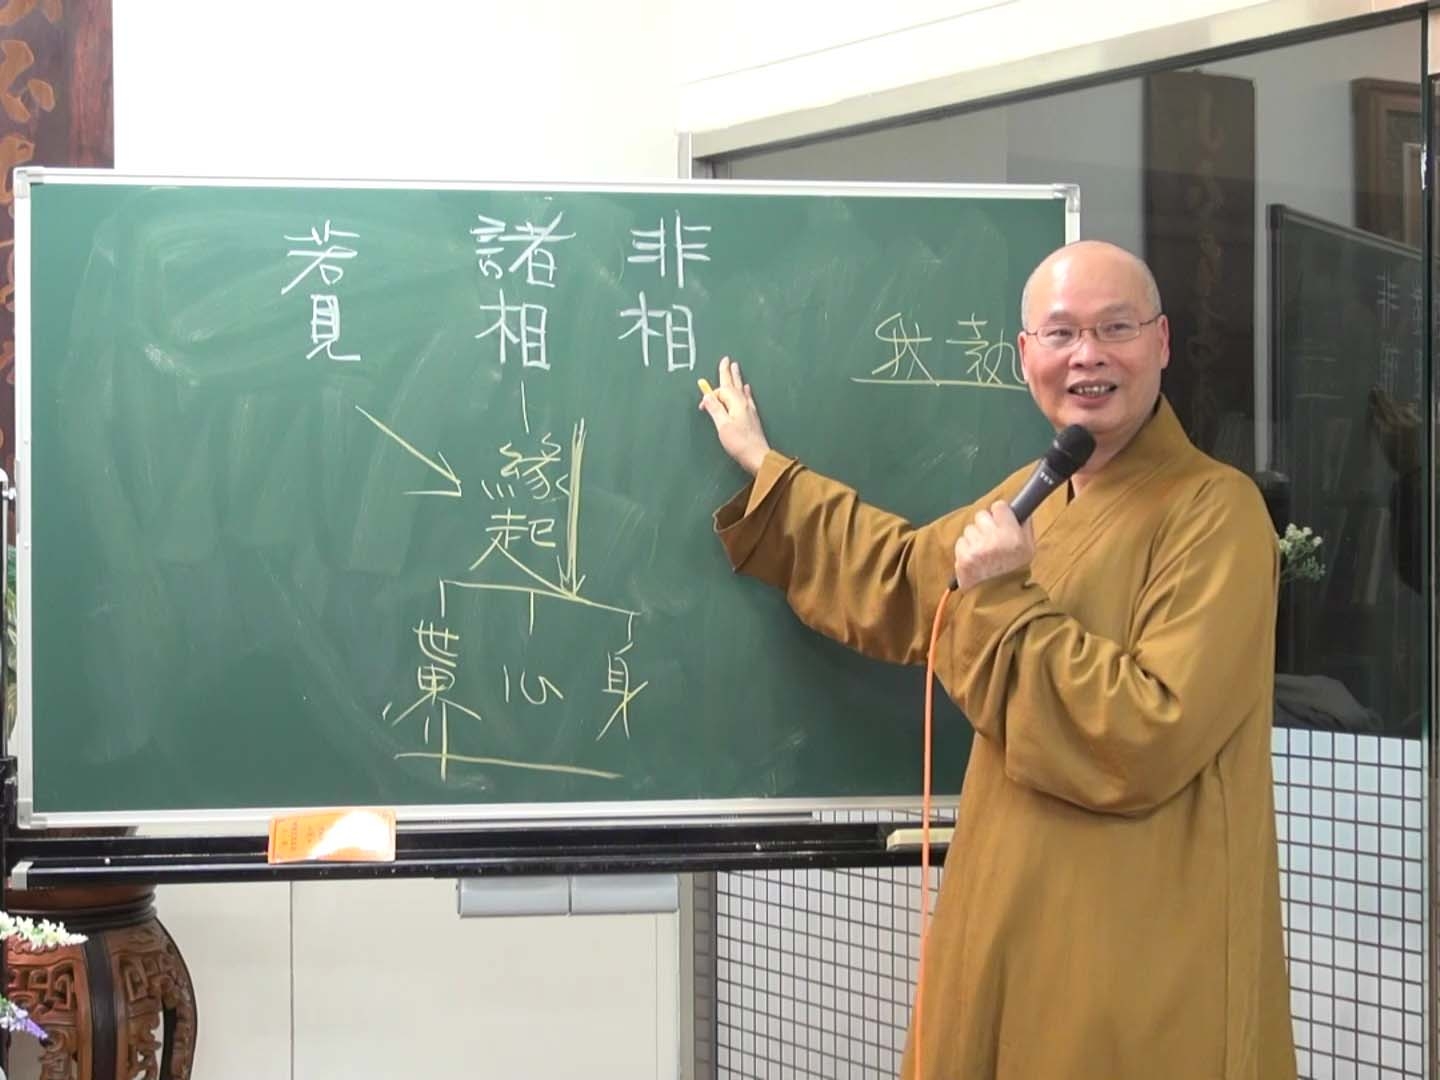 若見 諸相 非相
我執
緣起
世界 心 身